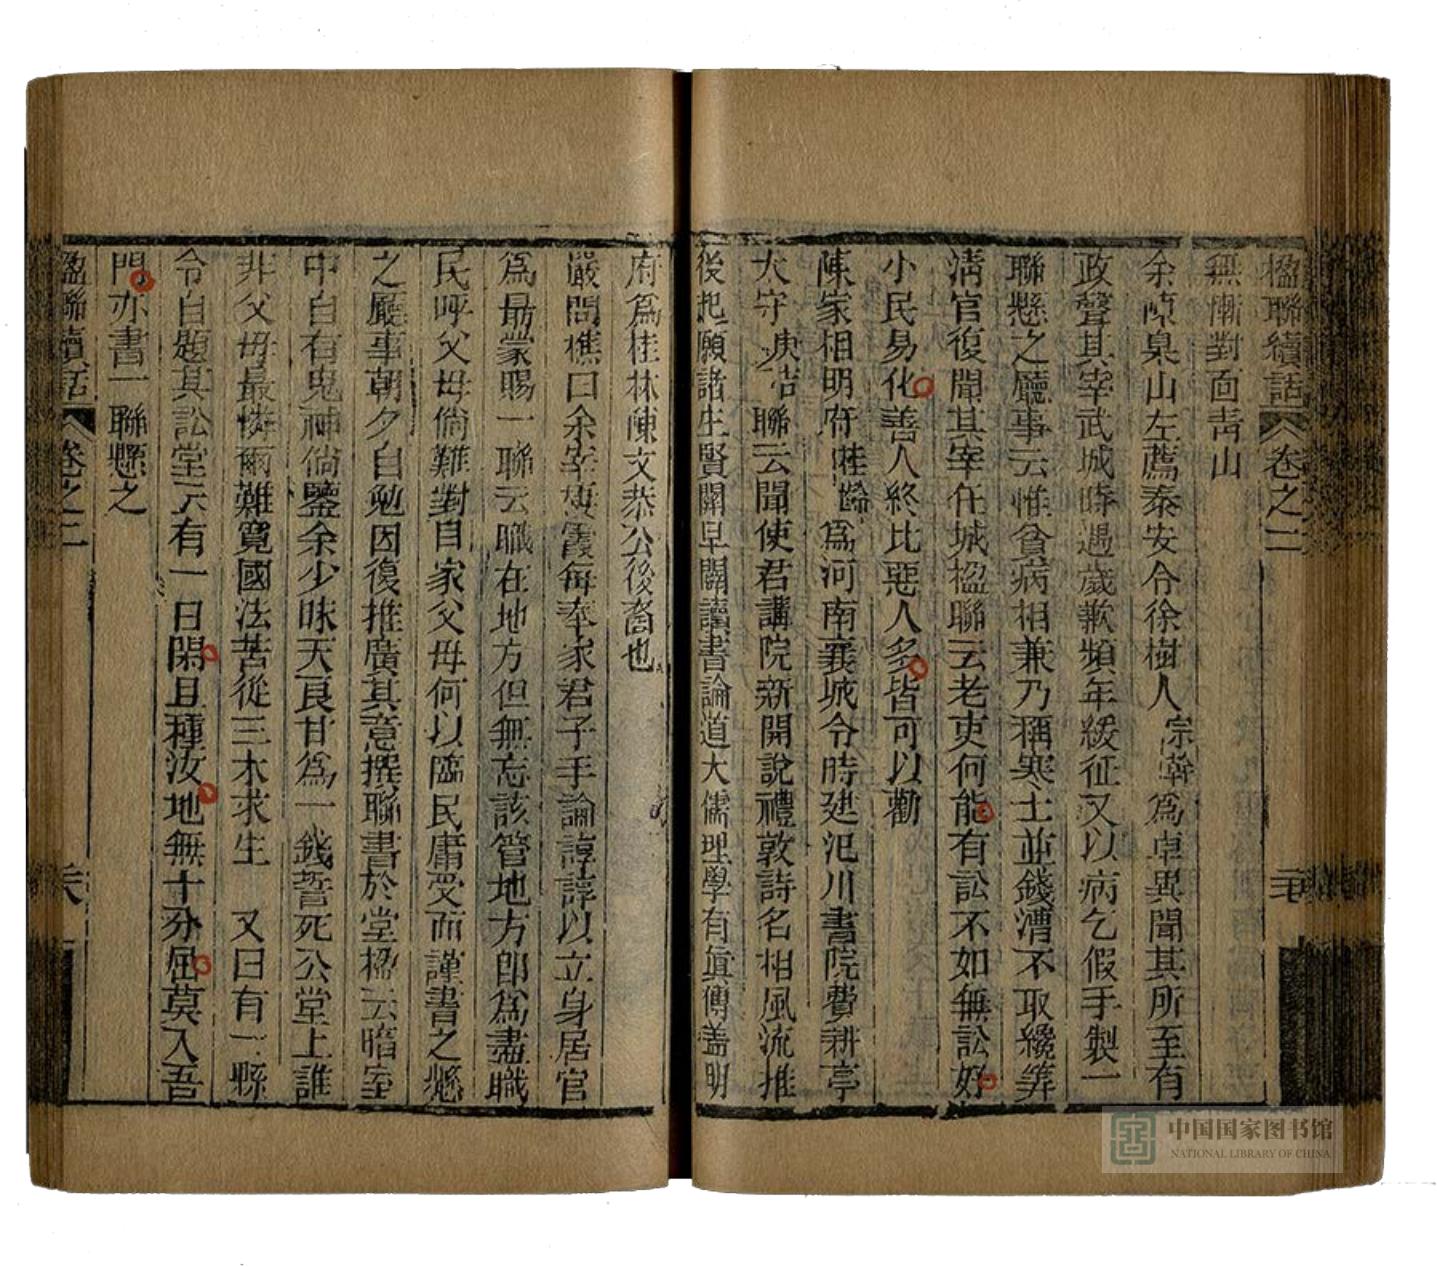 楹聯續話 卷之二
無慚對面靑山
余陳臬山左薦泰安令徐樹人宗幹爲卓異聞其所至有
政聲其宰武城時遇歲歉頻年緩征又以病乞假手製一
聯懸之廳事云惟貧病相兼乃稱寒士並錢漕不取纔筭
淸官復聞其宰任城楹聯云老吏何能有訟不如無訟好
小民易化善人終比惡人多皆可以勸
陳家相明府桂齡爲河南襄城令時建汜川書院費耕亭
太守庚吉聯云聞使君講院新開說禮敦詩名相風流推
後起願諸生賢關早闢讀書論道大儒理學有眞傳蓋明
府爲桂林陳文恭公後裔也
嚴問樵曰余宰棲霞每奉家君子手諭諄諄以立身居官
爲最蒙賜一聯云職在地方但無忘該管地方卽爲盡職
民呼父母倘難對自家父母何以臨民庸受而謹書之懸
之廳事朝夕自勉因復推廣其意撰聯書於堂楹云暗室
中自有鬼神倘鑒余少昧天良甘爲一錢誓死公堂上誰
非父母最憐爾難寬國法苦從三木求生 又曰有一縣
令自題其訟堂云有一日閑且種汝地無十分屈莫入吾
門亦書一聯懸之
楹聯續話 卷之二